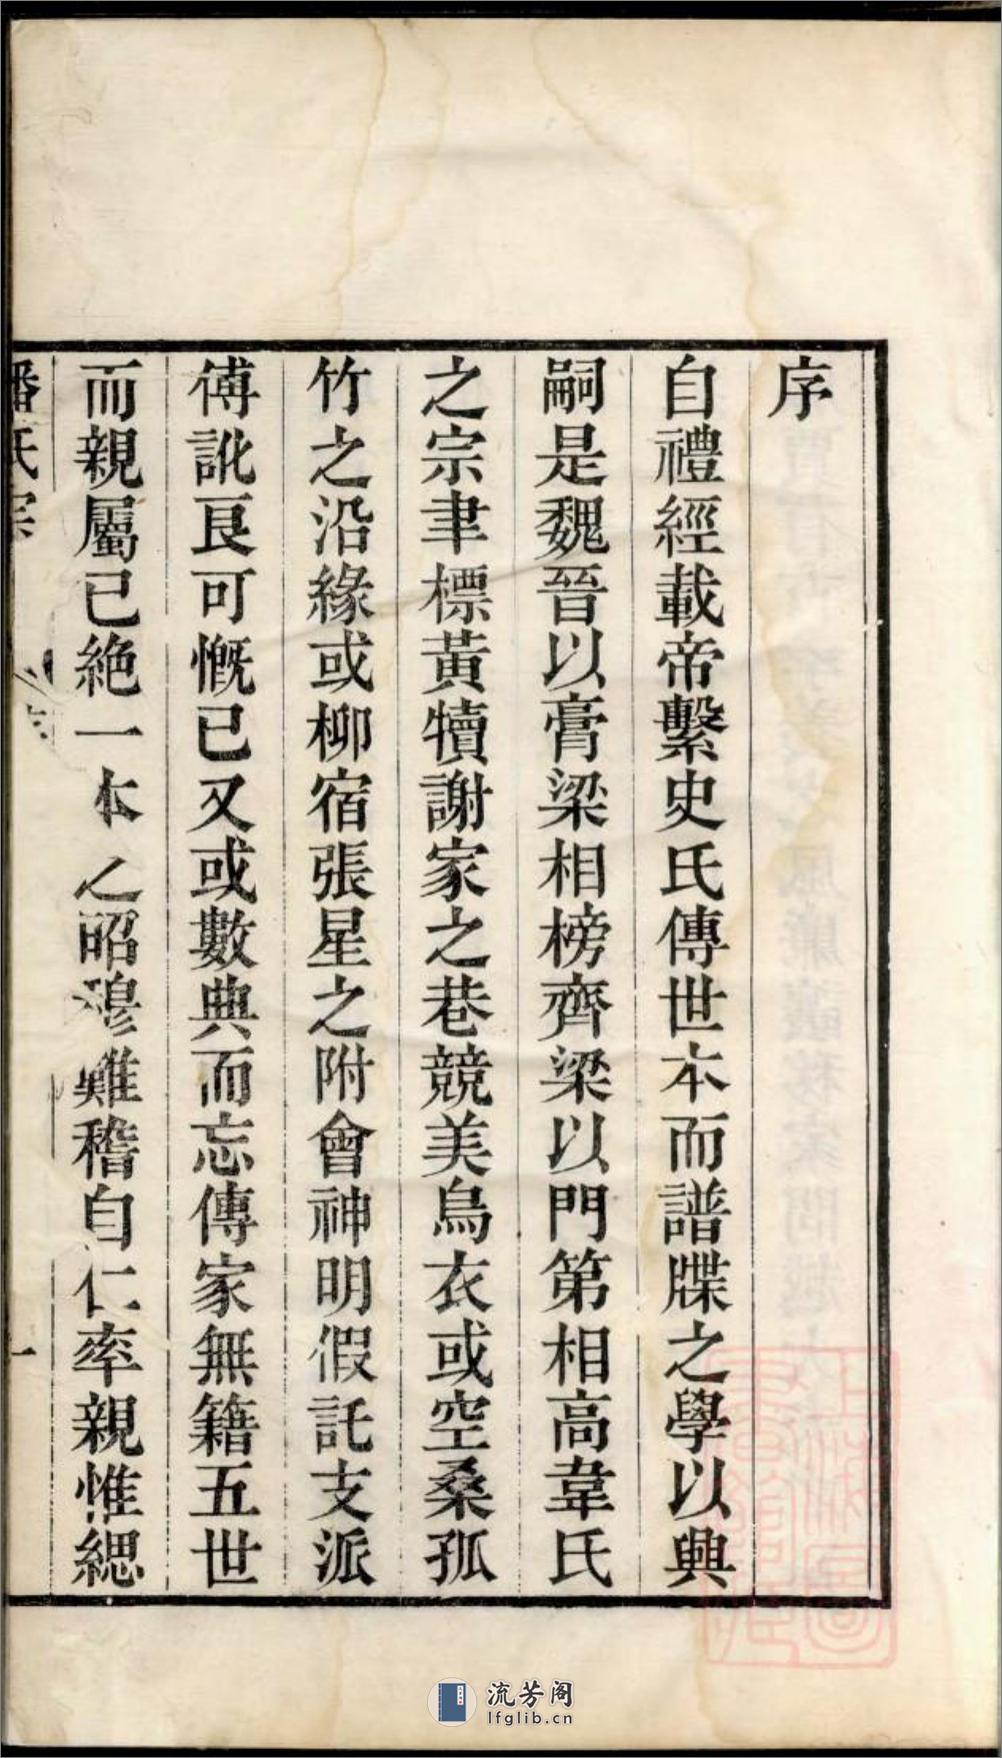 序
自禮經載帝繫史氏傳世本而譜牒之學以興
嗣是魏晉以膏梁相榜齊梁以門第相高韋氏
之宗聿標黃犢謝家之巷競美烏衣或空桑孤
竹之沿緣或柳宿張星之附會神明假託支派
傅訛良可慨已又或數典而忘傳家無籍五世
而親屬已絶一本之昭穆難稽自仁率親惟緦
潘氏宗
一
流芳阁
lfglib.cn